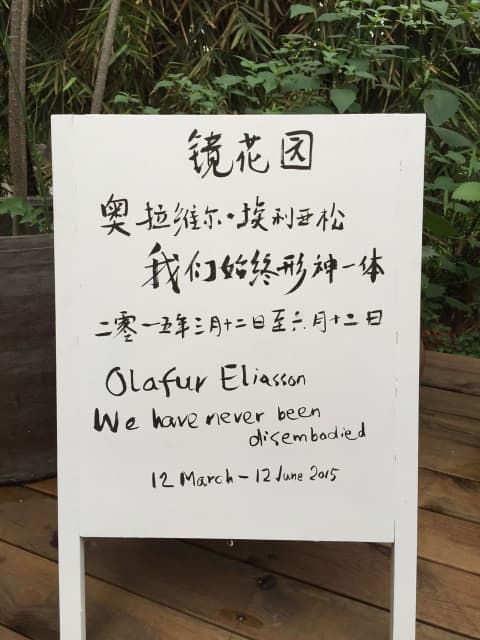 镜花园
奥拉维尔·埃利亚松
我们始终形神一体
二零一五年三月十二日至六月十二日
Olafur Eliasson
We have never been
disembodied
12 March - 12 June 2015